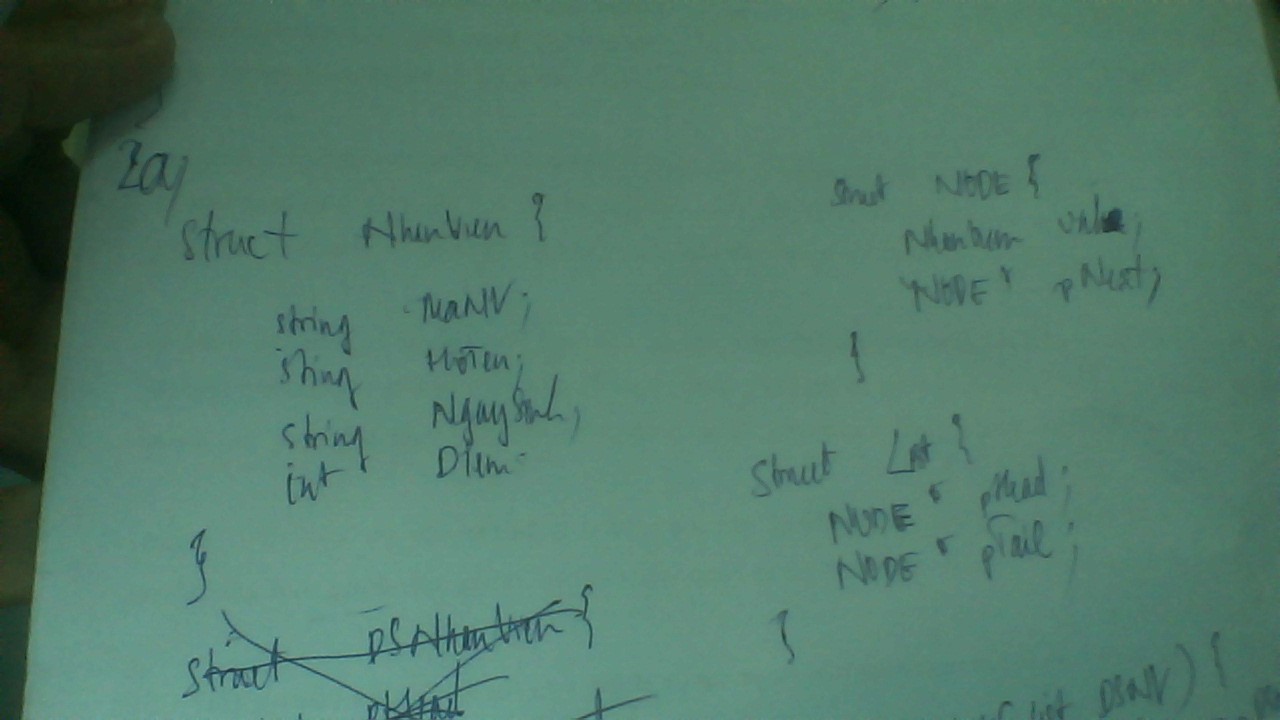 2a)
struct NhanVien {
string MaNV;
string HoTen;
string NgaySinh;
int Diem
}
struct DSNhanVien {
pHead
struct NODE {
NhanVien value;
NODE* pNext;
}
struct List {
NODE* pHead;
NODE* pTail;
}
DSNV) {